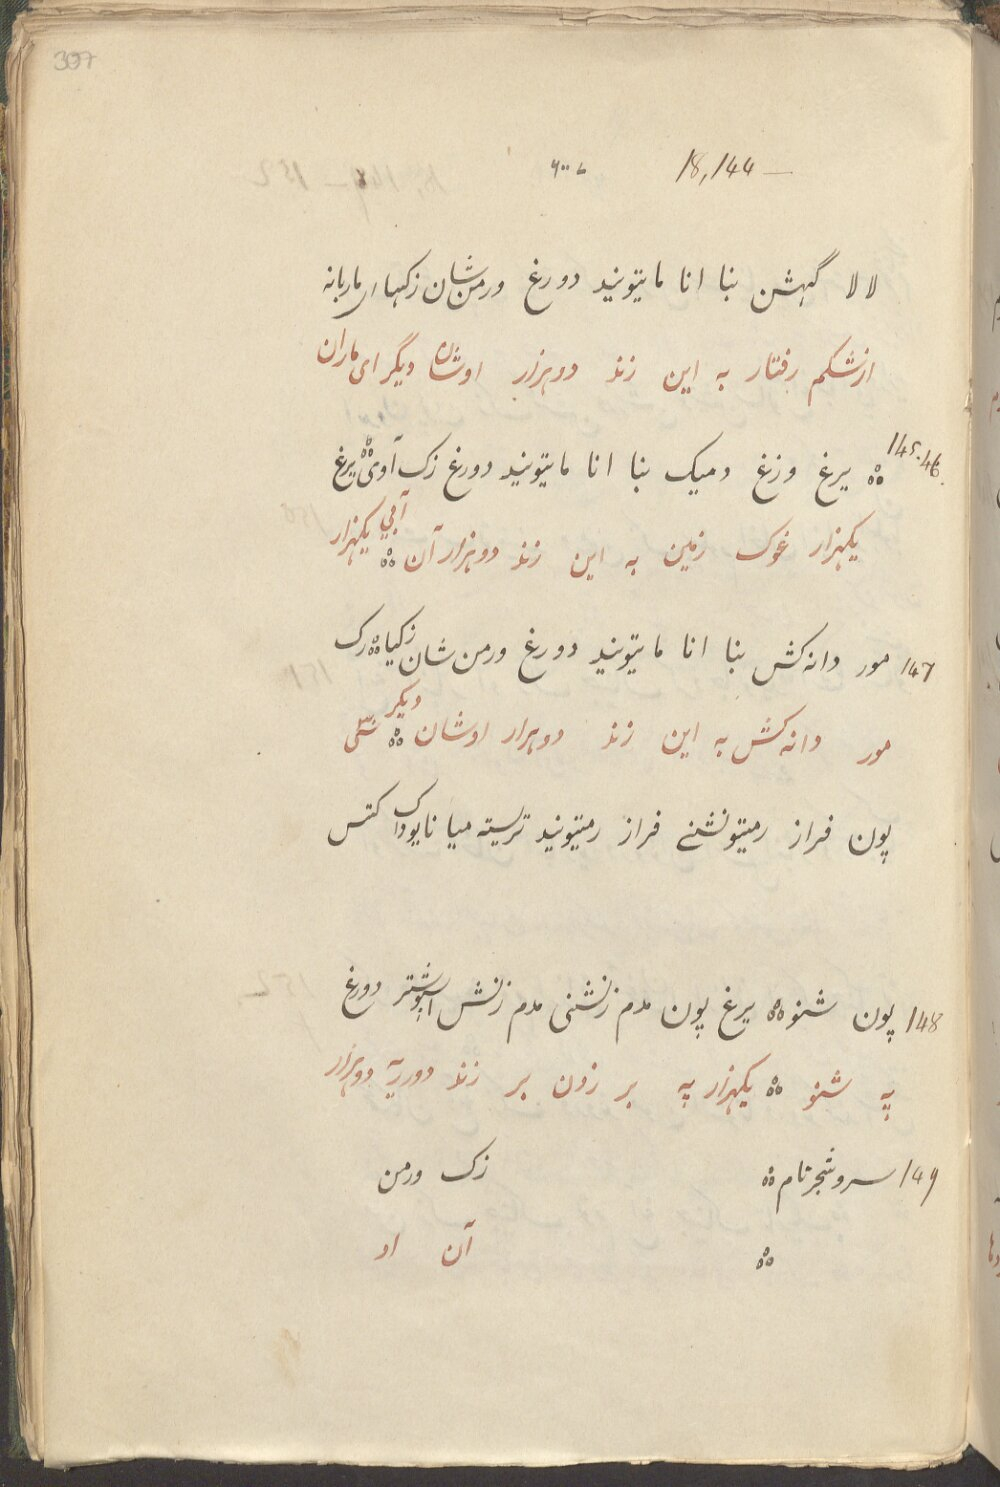 307
18,144 —
لا لا گهشن بنا انا ماتیونید دو رغ ورمن شان زکهای ماربانه
از شکم رفتار به این زند دو هزار اوشان دیگر ای ماران
145.46. یرغ وزغ دمیک بنا انا ماتیونید دو رغ زک آوی یرغ
یکهزار غوک زمین به این زند دو هزار آن آبی یکهزار
147 مور دانه کش بنا انا ماتیونید دو رغ ورمن شان زکیا
مور دانه کش به این زند دو هزار اوشان دیگر
پون فراز رمیتونشنے فراز رمیتونید
148 پون شنو یرغ پون مدم زنشنی مدم زنش دو رغ
په شنو یکهزار په بر زدن بر زند دو هزار
149 سروشجرنام زک ورمن
آن او